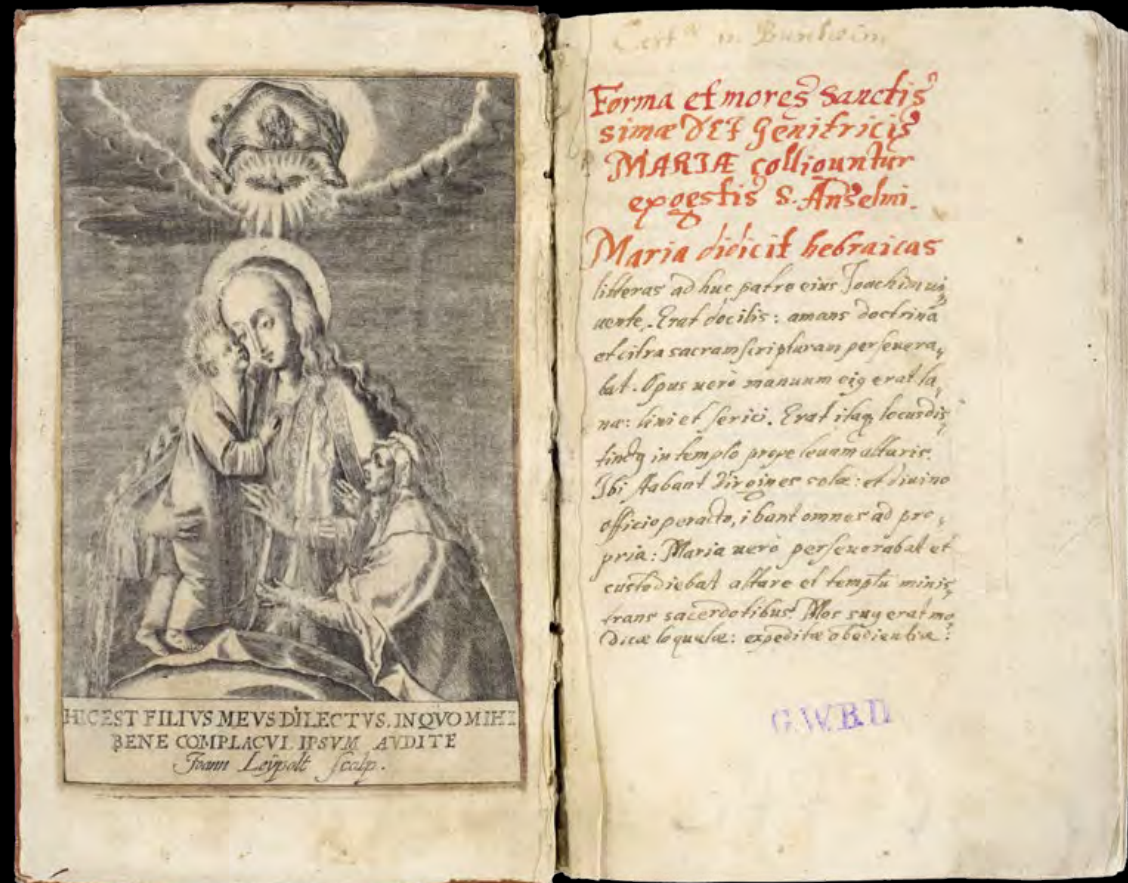 HIC EST FILIVS MEVS DILECTVS. IN QVO MIHI
BENE COMPLACVI. IPSVM AVDITE
Joann Leÿpolt scalp.
in Buxheim
Forma et mores Sanctis
simæ DEI Genitricis
MARIÆ colliguntur
ex gestis S. Anselmi.
Maria didicit hebraicas
litteras ad huc patre eius Joachim ui,
uente. Erat docilis: amans doctrinā
et citra sacram scripturam perseuera,
bat. Opus uerò manuum eiꝰ erat la,
næ: lini et serici. Erat itaqꝫ locus dis,
tinctꝰ in templo prope leuam altaris.
Ibi stabant Virgines solæ: et diuino
officio peracto, ibant omnes ad pro,
pria: Maria uerò perseuerabat et
custodiebat altare et templū minis,
trans sacerdotibus. Mos suꝰ erat mo
dicæ loquulæ: expeditæ obedientiæ:
G.W.B.II